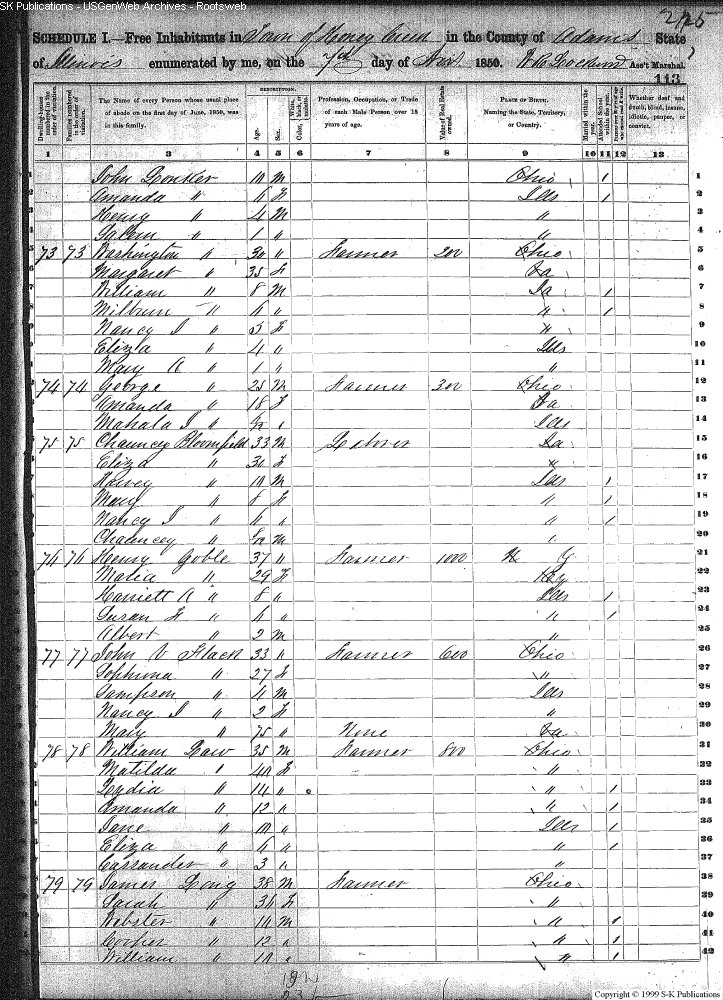 SK Publications - USGenWeb Archives - Rootsweb
SCHEDULE I.—Free Inhabitants in Town of Honey Creek in the County of Adams State
of Illinois enumerated by me, on the 7th day of 1850. Ass't Marshal.
113
Dwelling-houses numbered in the order of visitation. Families numbered in the order of visitation. The Name of every Person whose usual place of abode on the first day of June, 1850, was in this family. DESCRIPTION. Age. Sex. White, black, or mulatto. Color, Profession, Occupation, or Trade of each Male Person over 15 years of age. Value of Real Estate owned. PLACE OF BIRTH. Naming the State, Territory, or Country. Married within the year. Attended School within the year. Whether deaf and dumb, blind, insane, idiotic, pauper, or convict.
1 2 3 4 5 6 7 8 9 10 11 12 13
1 John 10 M Ohio / 1
2 Amanda " 6 F Ills / 2
3 Henry " 4 M " 3
4 " 1 " " 4
5 73 73 Washington " 30 " Farmer 200 Ohio 5
6 Margaret " 35 F 6
7 William " 8 M Ia / 7
8 Milburn " 6 " " / 8
9 Nancy J " 5 F " 9
10 Eliza " 4 " Ills 10
11 Mary A " 1 " " 11
12 74 74 George " 25 M Farmer 300 Ohio 12
13 Amanda " 18 F 13
14 Mahala J " " Ills 14
15 75 75 Chauncey Bloomfield 33 M Laborer 15
16 Eliza " 30 F " 16
17 Harvey " 10 M Ills / 17
18 Mary " 8 F " / 18
19 Nancy J " 6 " " / 19
20 Chauncey " M " 20
21 76 76 Henry Goble 37 " Farmer 1000 N Y 21
22 " 29 F Ky 22
23 Harriett A " 8 " Ills / 23
24 Susan F " 6 " " / 24
25 Albert " 2 M " 25
26 77 77 John V Flack 33 " Farmer 600 Ohio 26
27 " 27 F " 27
28 Sampson " 4 M Ills 28
29 Nancy J " 2 F " 29
30 Mary " 75 " None 30
31 78 78 William Law 35 M Farmer 800 Ohio 31
32 Matilda " 40 F " 32
33 Lydia " 14 " " / 33
34 Amanda " 12 " " / 34
35 Jane " 10 " Ills / 35
36 Eliza " 6 " " / 36
37 Cassander " 3 " " 37
38 79 79 James Long 38 M Farmer Ohio 38
39 Sarah " 36 F " 39
40 Webster " 14 M " / 40
41 Cooper " 12 " " / 41
42 William " 10 " " / 42
Copyright © 1999 S-K Publications